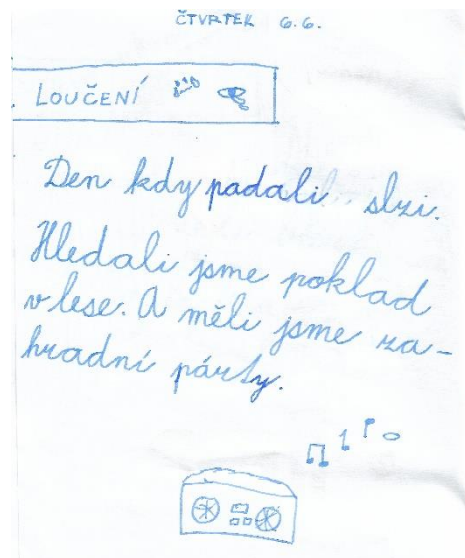 ČTVRTEK 6.6.
LOUČENÍ
Den kdy padali slzi.
Hledali jsme poklad
v lese. A měli jsme za-
hradní párty.